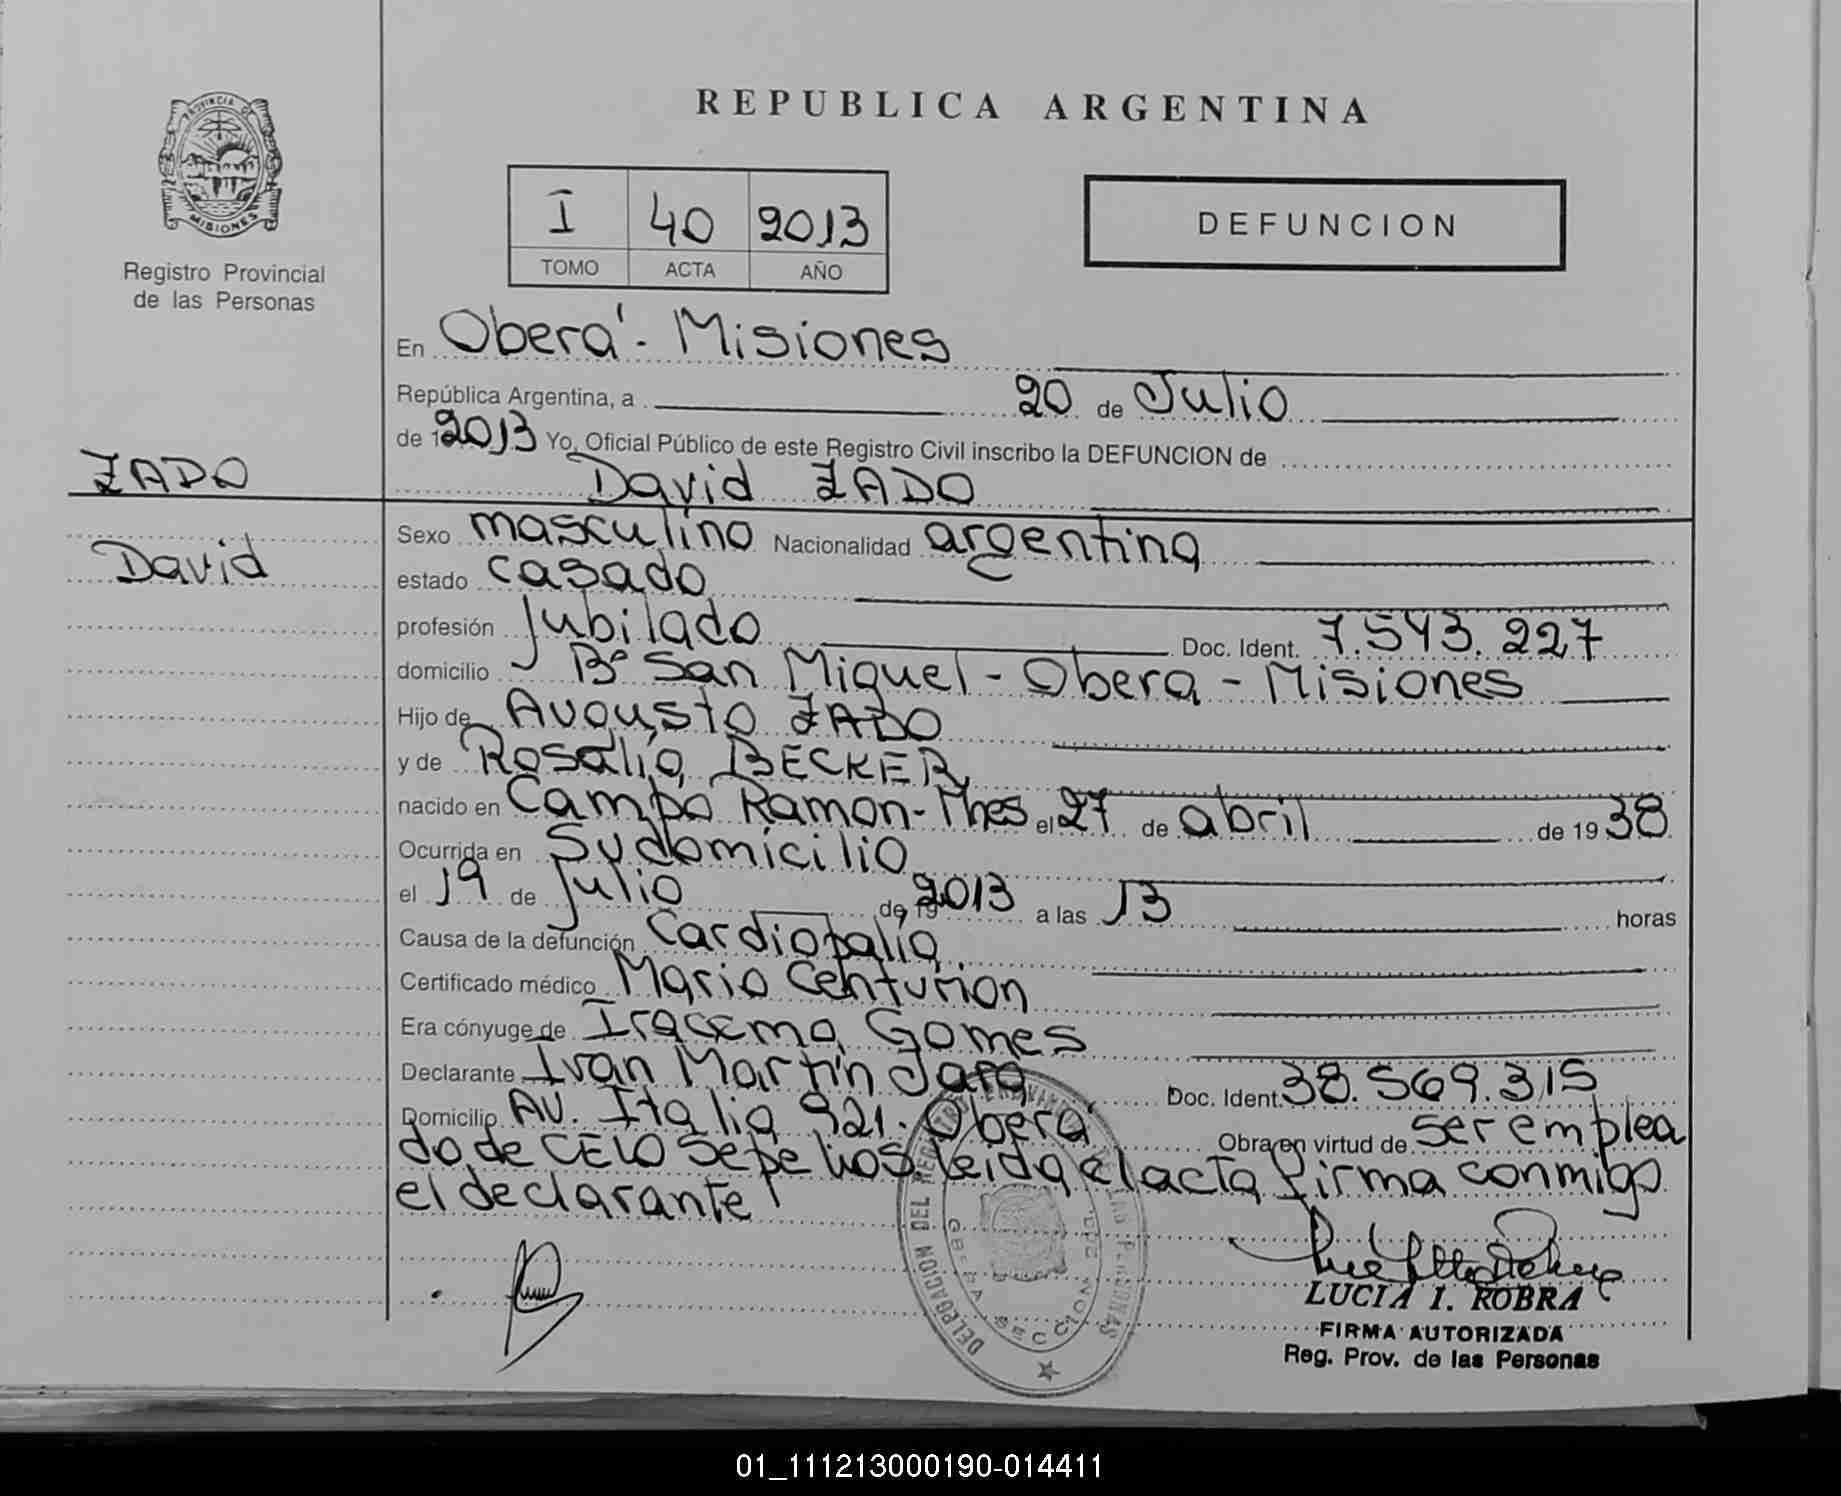 REPUBLICA ARGENTINA
PROVINCIA DE
MISIONES
Registro Provincial
de las Personas
I 40 2013
TOMO ACTA AÑO
DEFUNCION
En Oberá - Misiones
República Argentina, a 20 de Julio
de 2013 Yo, Oficial Público de este Registro Civil inscribo la DEFUNCION de
ZADO
David ZADO
David
Sexo masculino Nacionalidad argentina
estado casado
profesión Jubilado Doc. Ident. 7.543.227
domicilio B° San Miguel - Obera - Misiones
Hijo de Augusto ZADO
y de Rosalia BECKER
nacido en Campo Ramon - Mnes el 27 de abril de 1938
Ocurrida en Su domicilio
el 19 de Julio de 19 2013 a las 13 horas
Causa de la defunción Cardiopatia
Certificado médico Mario Centurion
Era cónyuge de Iracema Gomes
Declarante Ivan Martín Jara Doc. Ident. 38.569.315
Domicilio AV. Italia 921. Oberá Obra en virtud de ser emplea
do de CELO Sepelios. leida el acta firma conmigo
el declarante
DELEGACION DEL REGISTRO PROVINCIAL DE LAS PERSONAS
OBERA SECCION
LUCIA I. ROBRA
FIRMA AUTORIZADA
Reg. Prov. de las Personas
01_111213000190-014411